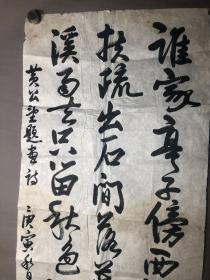 谁家亭子傍西
扶疏出石间落
溪雨去只留秋色
黄公望题画诗
庚寅秋月